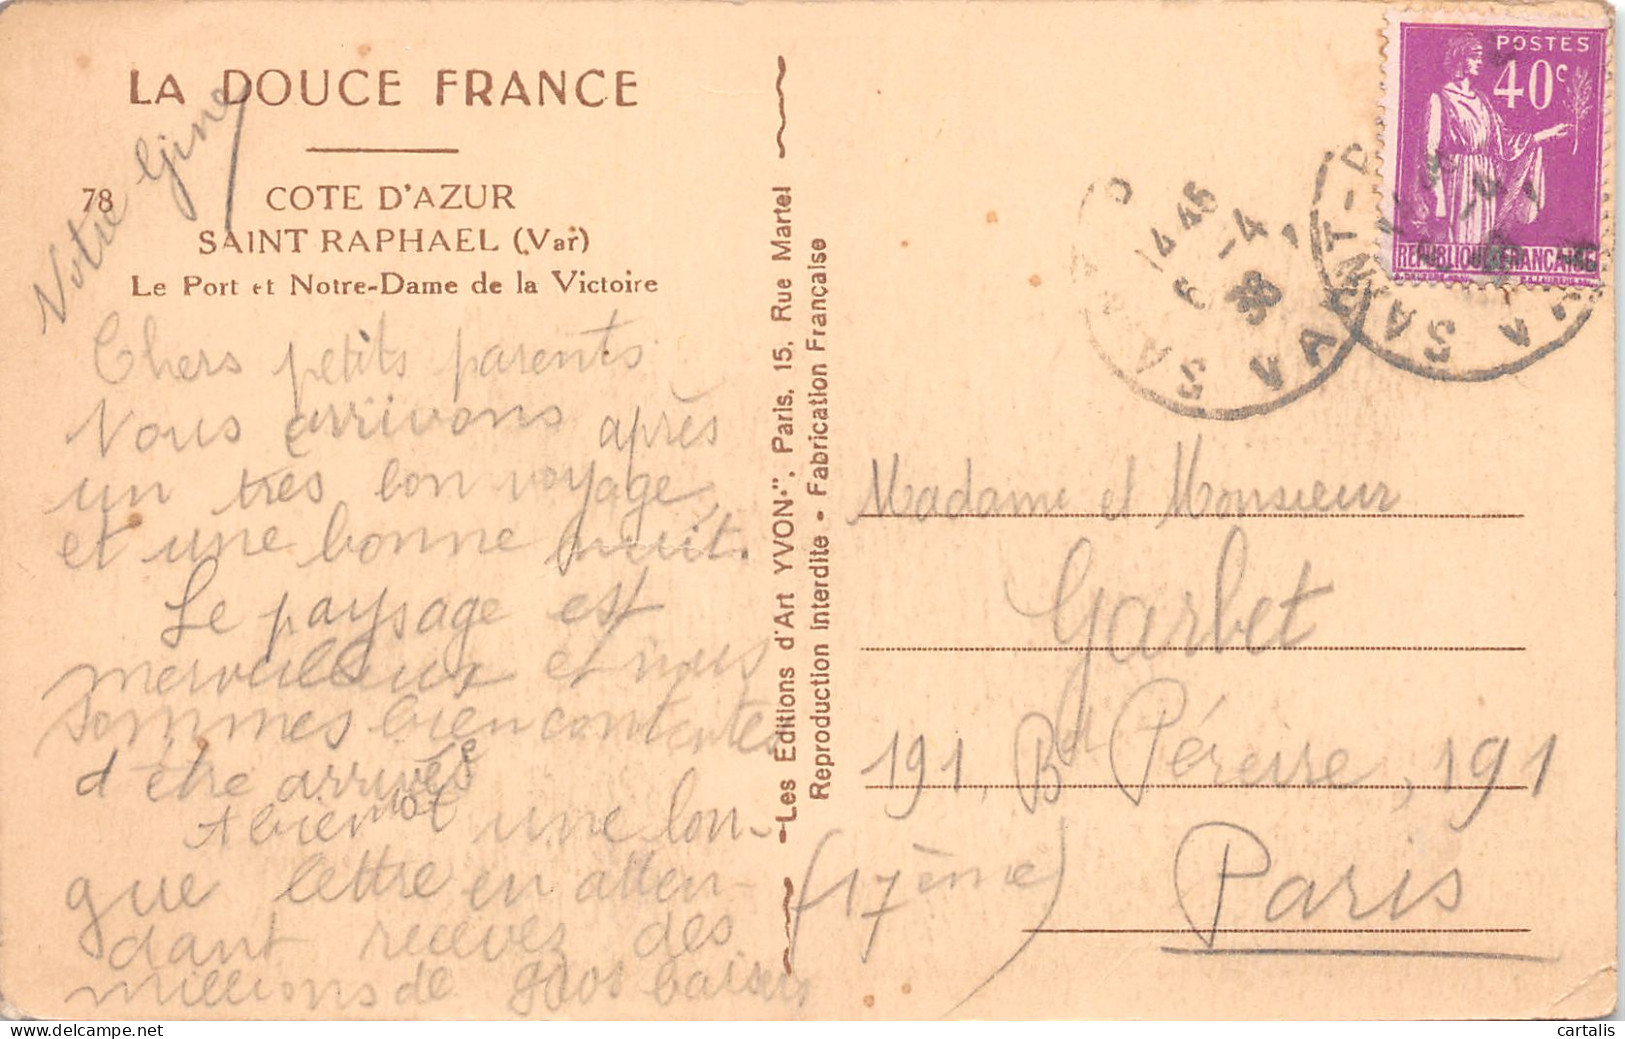 LA DOUCE FRANCE
78 COTE D'AZUR
SAINT RAPHAEL (Var)
Le Port et Notre-Dame de la Victoire
Chers petits parents
Nous arrivons après
un très bon voyage,
et une bonne nuit.
Le paysage est
merveilleux et nous
sommes bien contentes
d'être arrivées
A bientôt une lon-
gue lettre en atten-
dant recevez des
millions de gros baisers
Votre Gine
Les Editions d'Art YVON", Paris, 15, Rue Martel
Reproduction Interdite - Fabrication Française
POSTES
40c
REPUBLIQUE FRANÇAISE
1445
6 -4
38
VAR
SAINT-R
Madame et Monsieur
Garbet
191, Bd Péreire, 191
(17ème)
Paris
cartalis